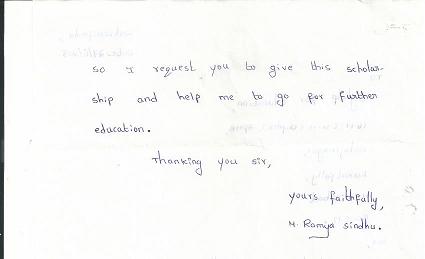 So I request you to give this scholar-
ship and help me to go for further
education.
Thanking you sir,
yours faithfully,
M. Ramya Sindhu.